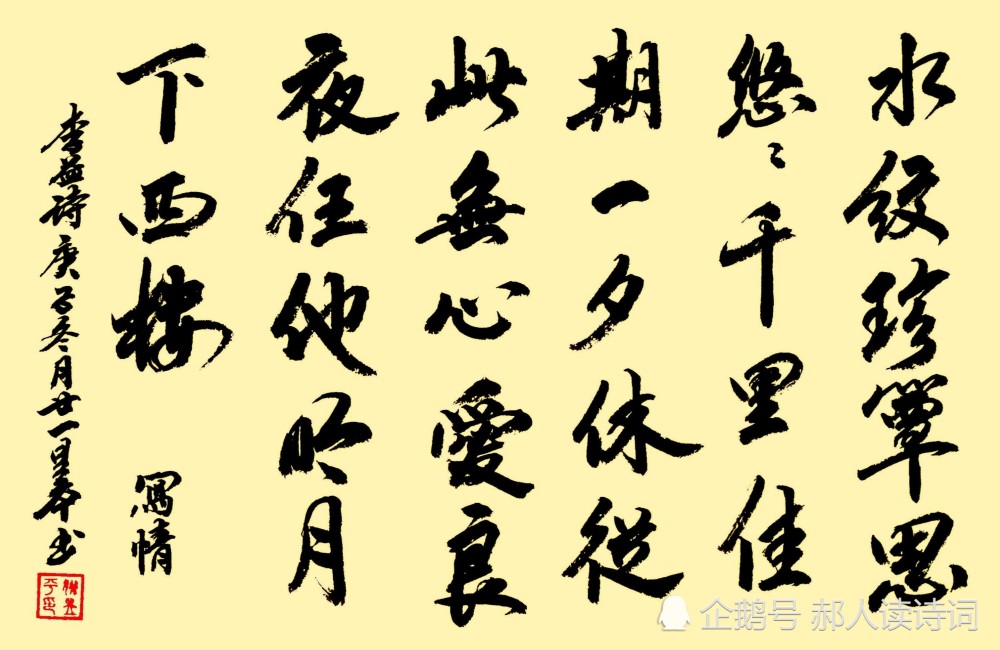 水纹珍簟思
悠〻千里佳
期一夕休從
此無心愛良
夜任他明月
下西樓
寫情
李益诗庚子冬月廿一书
企鹅号 郝人读诗词